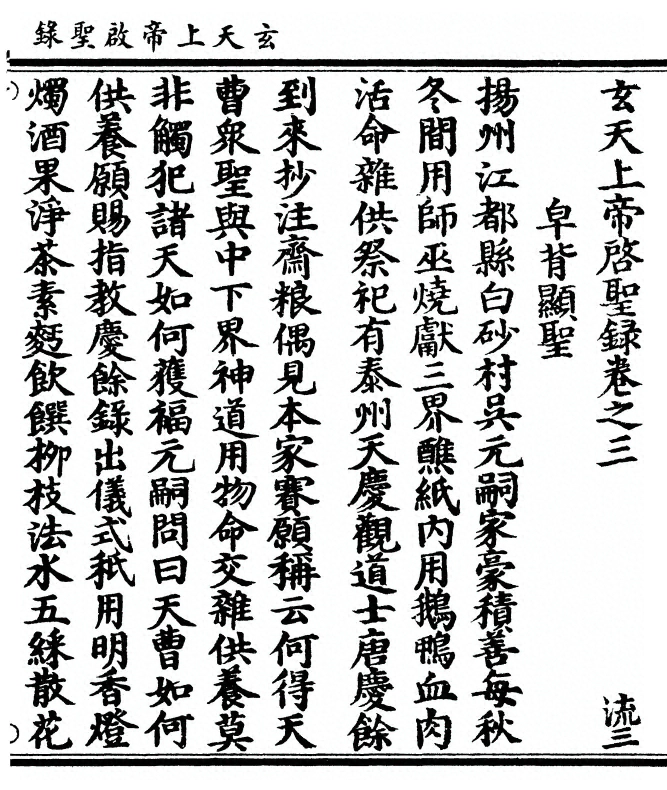 玄天上帝啟聖錄
玄天上帝啓聖録卷之三
流三
皁背顯聖
揚州江都縣白砂村吳元嗣家豪積善每秋
冬間用師巫燒獻三界醮紙內用鵝鴨血肉
活命雜供祭祀有泰州天慶觀道士唐慶餘
到來抄注齋粮偶見本家賽願稱云何得天
曹衆聖與中下界神道用物命交雜供養莫
非觸犯諸天如何獲福元嗣問曰天曹如何
供養願賜指教慶餘錄出儀式秖用明香燈
燭酒果淨茶素麪飲饌柳枝法水五綵散花